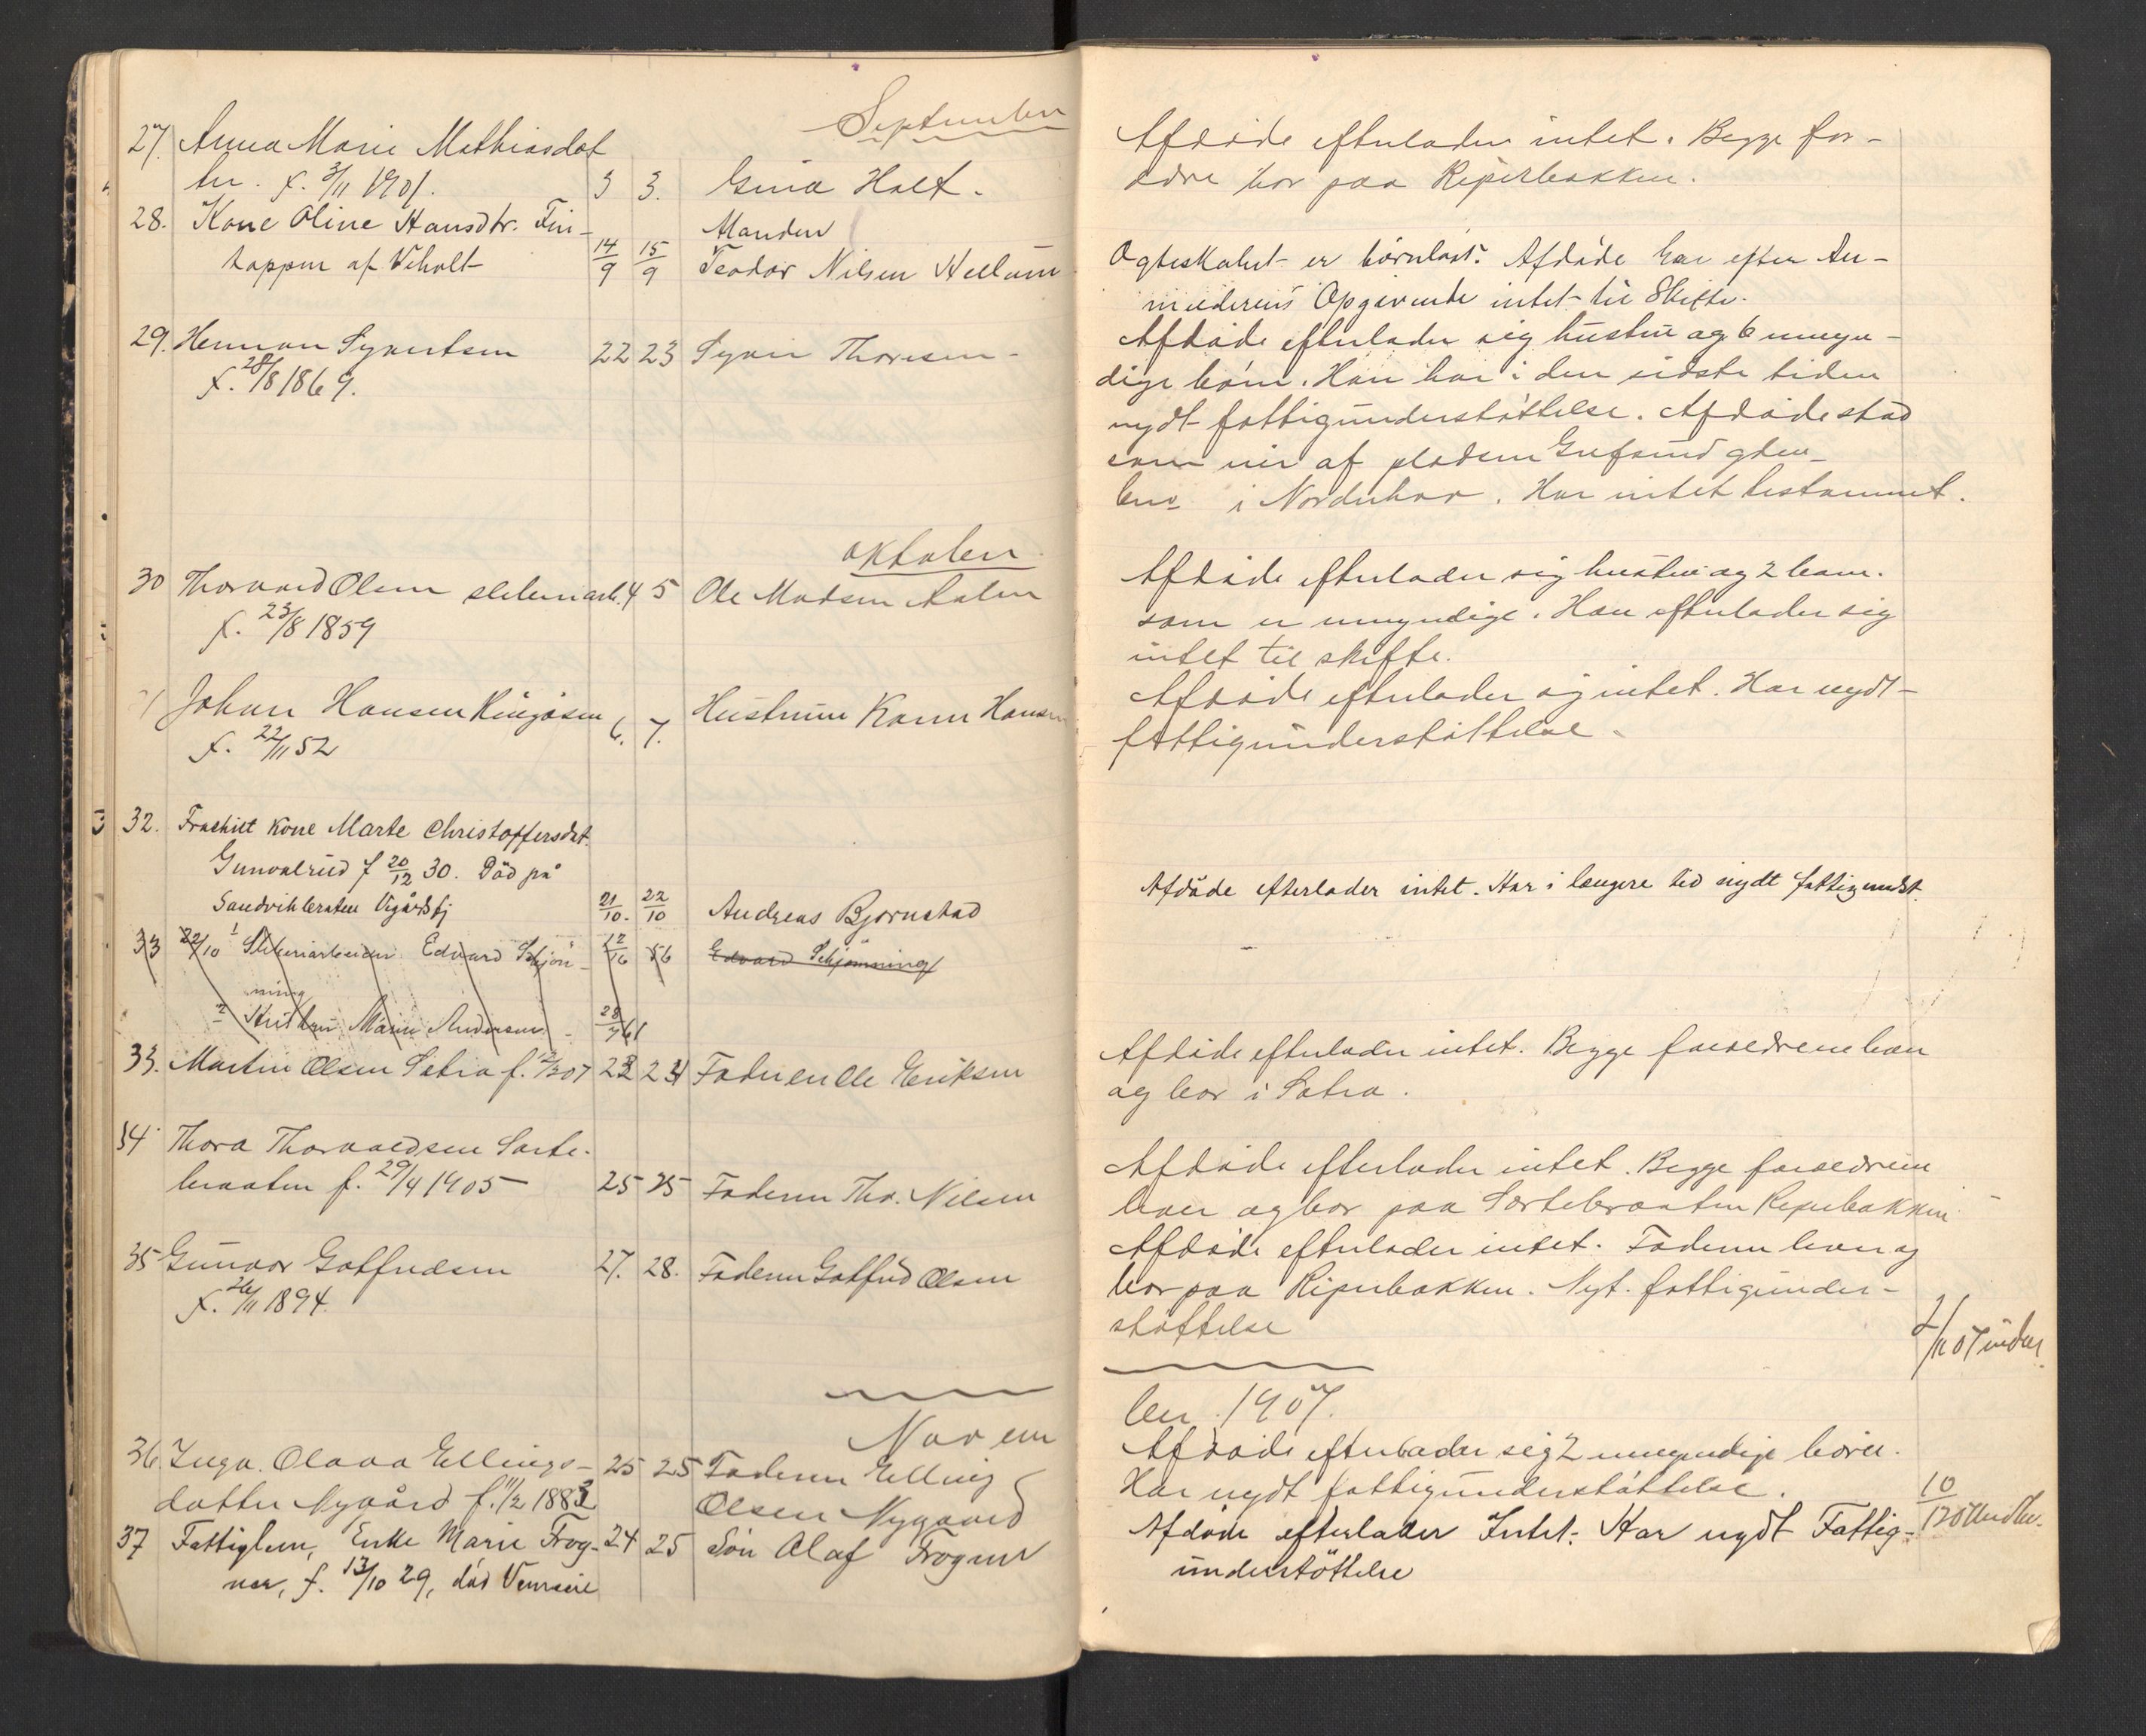 September
27. Anna Marie Mathiasdat
ter. f. 3/11 1901. 3 3. Gina Holt.
28. Kone Oline Hansdtr. Fin-
toppen af Viholt 14/9 15/9 Manden
Teodor Nilsen
29. Herman Syvertsen 22 23 Syver Thoresen
f. 28/8 1869.
oktober
30 Thorvard Olsen sliberiarb. 4 5 Ole Madsen Aalen
f. 23/8 1859
Johan Hansen Ringåsen 6. 7. Hustruen Karen Hansen
f. 22/11 52
32. Fraskilt Kone Marte Christoffersdat.
Gunvalrud f 20/12 30. Död på
Sandvikbraten Vigårdsfj 21/10. 22/10 Andreas Bjørnstad
33 22/10 1 Sliberiarbeider Edvard Schjön- 12/10 56 Edvard Schjønning
ning
2 Hustru Marie Andersen 28/7 61
33. Martin Olsen Sætra f. 12/2 07 23 24 Faderen Ole Eriksen
34 Thora Thorvaldsen Sorte-
braaten f. 29/4 1905 25 25 Faderen Tho. Nilsen
35 Gunvor Gotfredsen 27. 28. Faderen Gotfred Olsen
f. 26/11 1894.
Novem
36. Inga Olava Ellings- 25 25 Faderen Elling
datter Nygård f. 11/2 1883 Olsen Nygaard
37 Fattiglem, Enke Marie Frog- 24 25 Søn Olaf Frogner
ner, f. 13/10 29, død
Afdøde efterlader intet. Begge for-
ældre bor paa Riperbakken.
Ægteskabet er børnløst. Afdøde har efter An-
melderens Opgivende intet til Skifte.
Afdøde efterlader sig hustru og 6 umyn-
dige børn. Han har i den sidste tiden
nydt fattigunderstøttelse. Afdøde stod
som eier af pladsen
i Norderhov. Har intet testament.
Afdøde efterlader sig hustru og 2 barn.
som er umyndige. Han efterlader sig
intet til skifte.
Afdøde efterlader sig intet. Har nydt
fattigunderstøttelse.
Afdøde efterlader intet. Har i længere tid nydt fattigundst.
Afdøde efterlader intet. Begge forældrene lever
og bor i Sætra.
Afdøde efterlader intet. Begge forældrene
lever og bor paa Sortebraaten Riperbakken
Afdøde efterlader intet. Faderen lever og
bor paa Riperbakken. Nyt. fattigunder-
støttelse
2/11 07 indber.
ber. 1907.
Afdøde efterlader sig 2 umyndige børn.
Har nydt fattigunderstøttelse.
10/12 07 Indber.
Afdøde efterlader Intet. Har nydt Fattig-
understöttelse